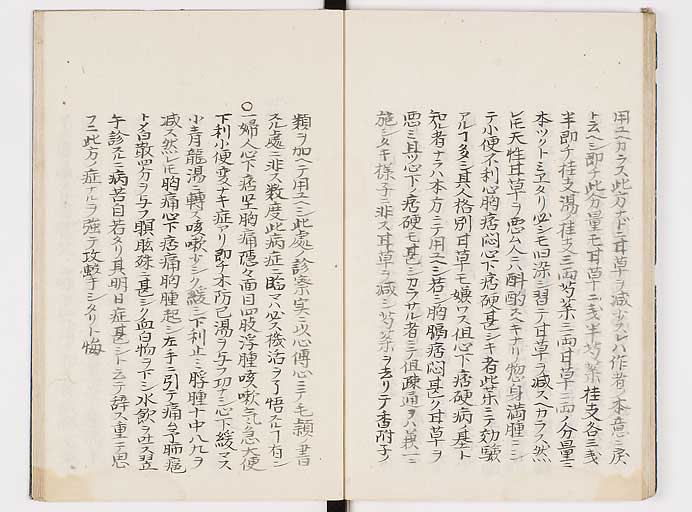 用ユヘカラス此方ナドニ甘草ヲ減少スレハ作者ノ本意ニ戻
ト云ヘシ即チ此分量モ甘草二戔半芍薬桂支各三戔
半即チ桂支湯ノ桂支三両芍薬三両甘草二両ノ分量ニ
本ツクトミヘタリ必シモ旧染ニ習テ甘草ヲ減スヘカラス然
レ𪜈天性甘草ヲ悪ム人ニハ斟酌スヘキナリ惣身満腫ニシ
テ小便不利心胸痞悶心下痞硬甚シキ者此薬ニテ効驗
アルヿ多ミ其人格別甘草モ嫌ワス但心下痞硬病ノ基ト
知ル者ナラハ本方ニテ用ユヘシ若シ胸膈痞悶甚ク甘草ヲ
悪ミ且ツ心下ノ痞硬モ甚シカラサル者ニテ但疎通ヲハ一ニ
施シタキ様子ニ非ス甘草ヲ減シ芍薬ヲ去リテ香附子ノ
類ヲ加ヘテ用ユヘシ此處ノ診察実ニ以心傳心ニテ毛頴ノ書
スル處ニ非ス數度此病症ニ臨マハ必ス機活ヲ了悟スルヿ有ン
〇一婦人心下痞堅胸痛隱々面目四肢浮腫咳嗽氣急大便
下利小便変ナキ症アリ即チ木防已湯ヲ与フ功ナシ心下緩マス
小青龍湯ニ轉ス咳嗽少シク緩シ下利止ミ浮腫十中八九ヲ
减ス然レ𪜈胸痛心下痞痛胸腫起シ左手ニ引テ痛ム予肺癰
ト名四方ヲ与フ瞑眩殊ニ甚シク血白物ヲ下シ水飲ヲ吐ス翌
午診スルニ病苦自若タリ其明日症甚シト云テ辞ス重テ思
フニ此方ノ症ナルヲ強テ攻撃シタリト悔